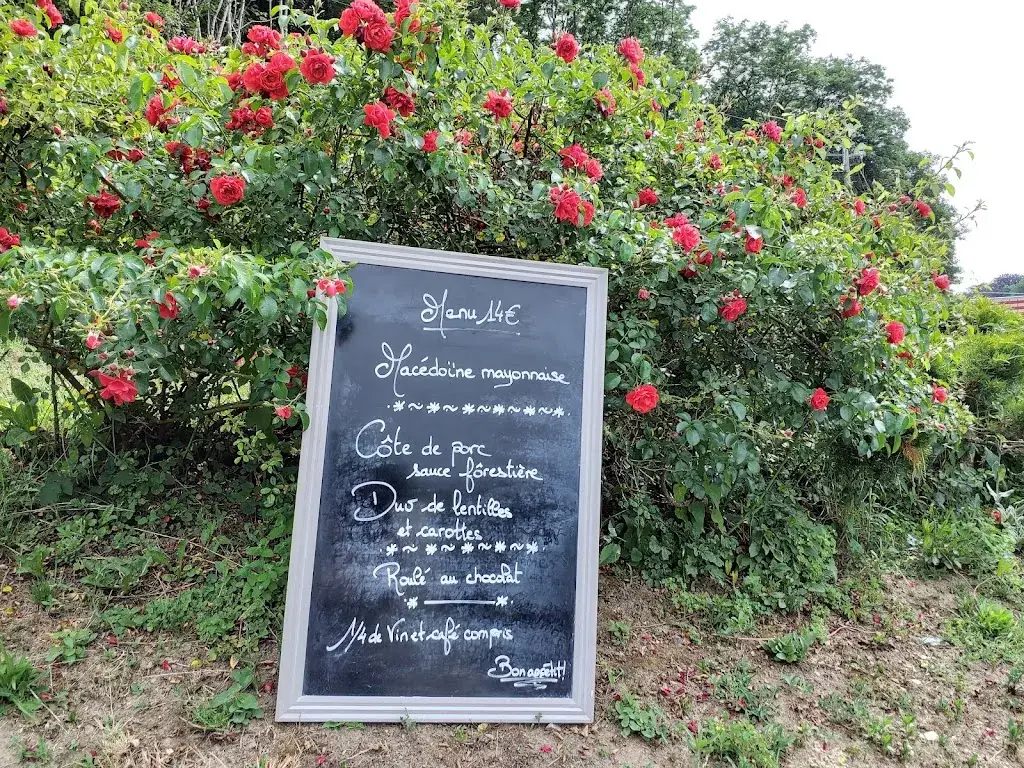 Menu 14€
Macédoine mayonnaise
Côte de porc
sauce fôrestière
Duo de lentilles
et carottes
Roulé au chocolat
1/4 de Vin et café compris
Bon appétit!